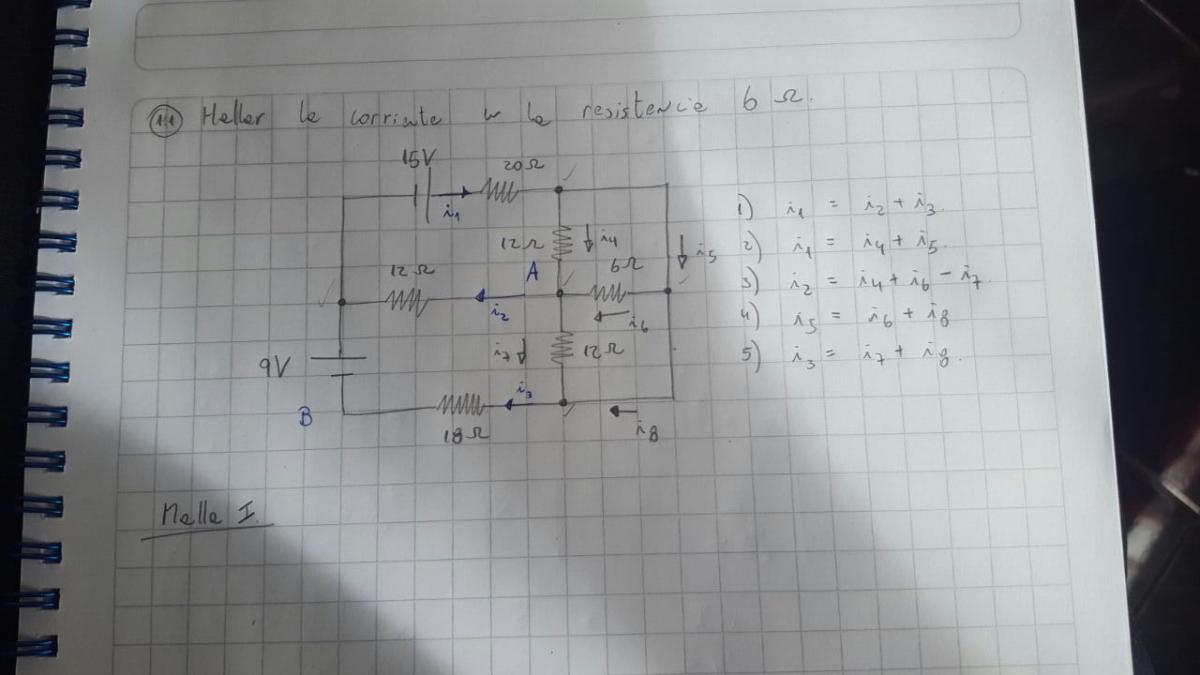 11 Hallar la corriente en la resistencia 6 Ω.
15V 20Ω
i1
12Ω i4 i5
A 6Ω
12Ω
i2 i6
i7 12Ω
9V
i3
B
18Ω i8
1) i1 = i2 + i3.
2) i1 = i4 + i5.
3) i2 = i4 + i6 - i7.
4) i5 = i6 + i8
5) i3 = i7 + i8.
Malla I.